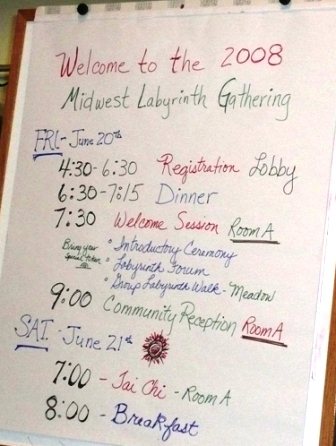 Welcome to the 2008
Midwest Labyrinth Gathering
FRI - June 20th
4:30-6:30 Registration Lobby
6:30-7:15 Dinner
7:30 Welcome Session Room A
Bring your special token
• Introductory Ceremony
• Labyrinth Forum
• Group Labyrinth Walk - Meadow
9:00 Community Reception Room A
SAT - June 21st
7:00 - Tai Chi - Room A
8:00 - Breakfast